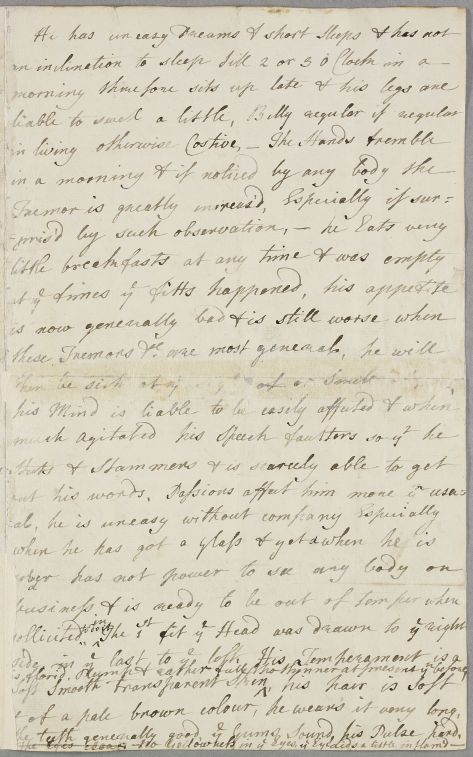 He has uneasy Dreams & short Sleeps & has not
an inclination to sleep till 2 or 3 o Clock in a
morning therefore sits up late & his legs are
liable to swell a little, Belly regular if regular
in living otherwise Costive, – The Hands tremble
in a morning & if noticed by any body the
Tremor is greatly increas'd, Especially if sur=
=pris'd by such observation, – he Eats very
little breakfasts at any time & was empty
at ye times ye fitts happened, his appetite
is now generally bad & is still worse when
these Tremors &c are most general, he will
then be sick at of a Smell
his Mind is liable to be easily affected & when
much agitated his Speech faulters so yt he
& Stammers & is scarcely able to get
out his words, Passions affect him more yn usu=
al, he is uneasy without company Especially
when he has got a Glass & yet a when he is
sober has not power to see any body on
business & is ready to be out of temper when
sollicited to do it in The 1st fit ye Head was drawn to ye right
side in ye last to ye left, His Temperament is a
florid, Plump & rather tho thynner at present yn before
Soft Smooth Transparent Skin, his hair is Soft
& of a pale brown colour, he wears it very long,
he teeth generally good, ye Gums Sound, his Pulse hard,
The Eyes clear no Yellowness in ye Eyes, ye Eyelids a little inflam'd –